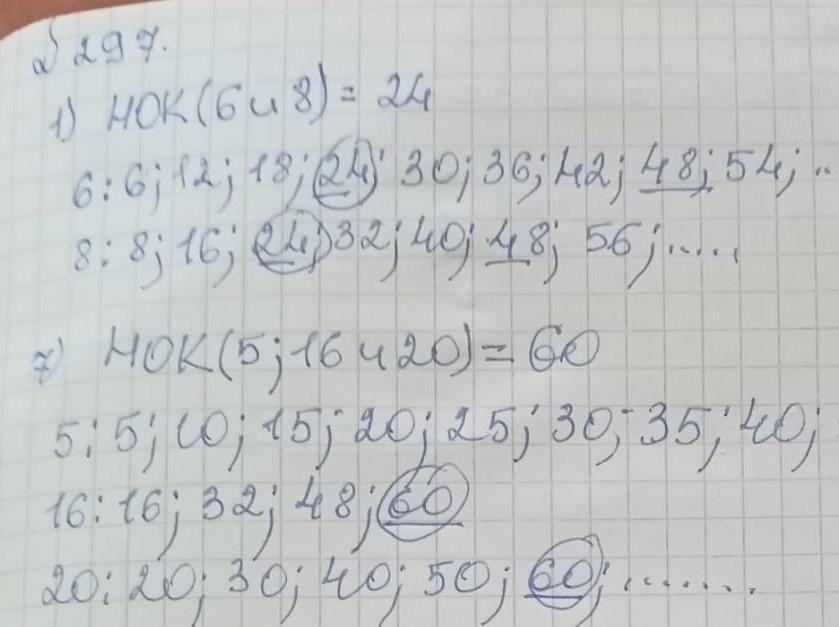 № 297.
1) НОК(6 и 8) = 24
6: 6; 12; 18; 24; 30; 36; 42; 48; 54; ..
8: 8; 16; 24; 32; 40; 48; 56; .....
7) НОК(5; 16 и 20) = 60
5: 5; 10; 15; 20; 25; 30; 35; 40;
16: 16; 32; 48; 60
20: 20; 30; 40; 50; 60; ........